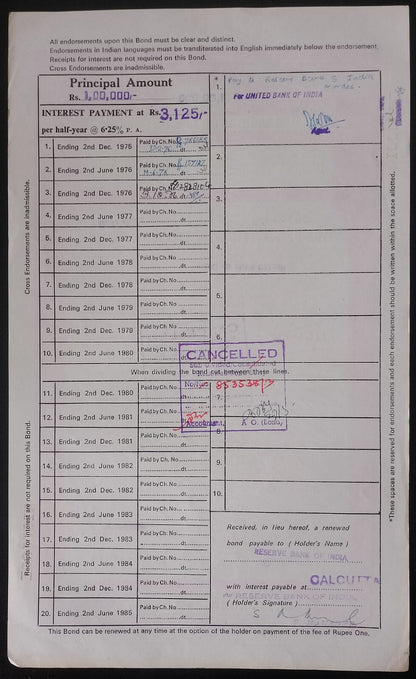 All endorsements upon this Bond must be clear and distinct.
Endorsements in Indian languages must be transliterated into English immediately below the endorsement.
Receipts for interest are not required on this Bond.
Cross Endorsements are inadmissible.
Principal Amount
Rs. 1,00,000/-
INTEREST PAYMENT at Rs. 3,125/-
per half-year @ 6·25% P. A.
1. Ending 2nd Dec. 1975 Paid by Ch. No.
dt.
2. Ending 2nd June 1976 Paid by Ch. No.
dt.
3. Ending 2nd Dec. 1976 Paid by Ch. No.
dt.
4. Ending 2nd June 1977 Paid by Ch. No.
dt.
5. Ending 2nd Dec. 1977 Paid by Ch. No.
dt.
6. Ending 2nd June 1978 Paid by Ch. No.
dt.
7. Ending 2nd Dec. 1978 Paid by Ch. No.
dt.
8. Ending 2nd June 1979 Paid by Ch. No.
dt.
9. Ending 2nd Dec. 1979 Paid by Ch. No.
dt.
10. Ending 2nd June 1980 Paid by Ch. No.
dt.
When dividing the bond cut between these lines.
11. Ending 2nd Dec. 1980 Paid by Ch. No.
dt.
12. Ending 2nd June 1981 Paid by Ch. No.
dt.
13. Ending 2nd Dec. 1981 Paid by Ch. No.
dt.
14. Ending 2nd June 1982 Paid by Ch. No.
dt.
15. Ending 2nd Dec. 1982 Paid by Ch. No.
dt.
16. Ending 2nd June 1983 Paid by Ch. No.
dt.
17. Ending 2nd Dec. 1983 Paid by Ch. No.
dt.
18. Ending 2nd June 1984 Paid by Ch. No.
dt.
19. Ending 2nd Dec. 1984 Paid by Ch. No.
dt.
20. Ending 2nd June 1985 Paid by Ch. No.
dt.
*
1. Pay to Reserve Bank of India
or order
For UNITED BANK OF INDIA
Agent.
2.
3.
4.
5.
6.
CANCELLED
853538/3
Accountant, A. O. (Loan)
7.
8.
9.
10.
Received, in lieu hereof, a renewed
bond payable to ( Holder's Name )
RESERVE BANK OF INDIA
with interest payable at CALCUTTA
For RESERVE BANK OF INDIA
( Holder's Signature )
This Bond can be renewed at any time at the option of the holder on payment of the fee of Rupee One.
Cross Endorsements are inadmissible.
Receipts for interest are not required on this Bond.
*These spaces are reserved for endorsements and each endorsement should be written within the space allotted.